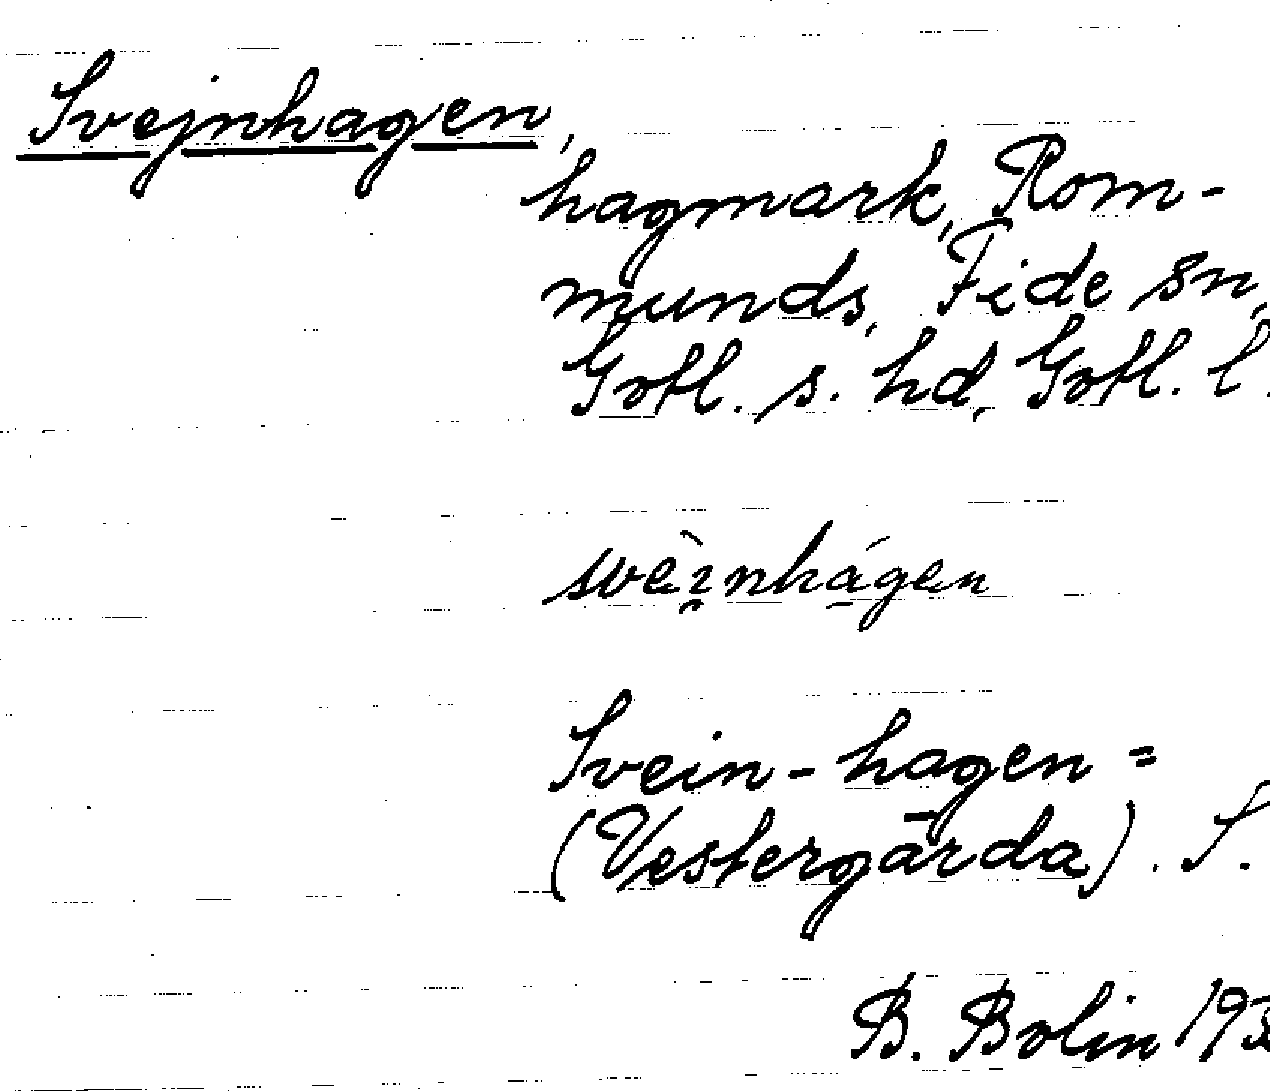 Svejnhagen,
hagmark, Rom-
munds, Fide sn,
Gotl. s. hd, Gotl. l.
svèi̯nhá̱gen
Svein-hagen =
(Vestergārda). S.
B. Bolin